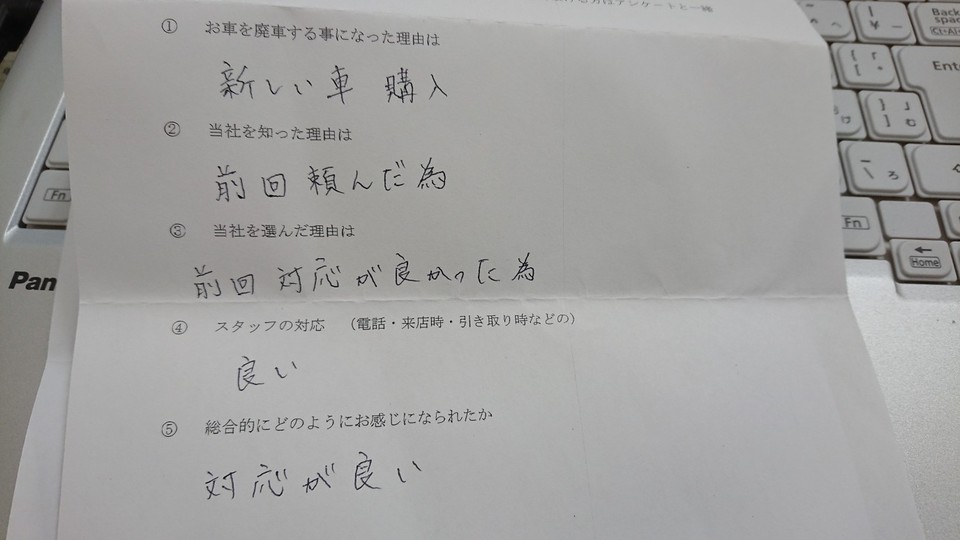 アンケートと一緒
① お車を廃車する事になった理由は
新しい車 購入
② 当社を知った理由は
前回 頼んだ為
③ 当社を選んだ理由は
前回 対応が良かった為
④ スタッフの対応 （電話・来店時・引き取り時などの）
良い
⑤ 総合的にどのようにお感じになられたか
対応が良い
Pan
Fn
Back
spac
Ent
Fn
Home